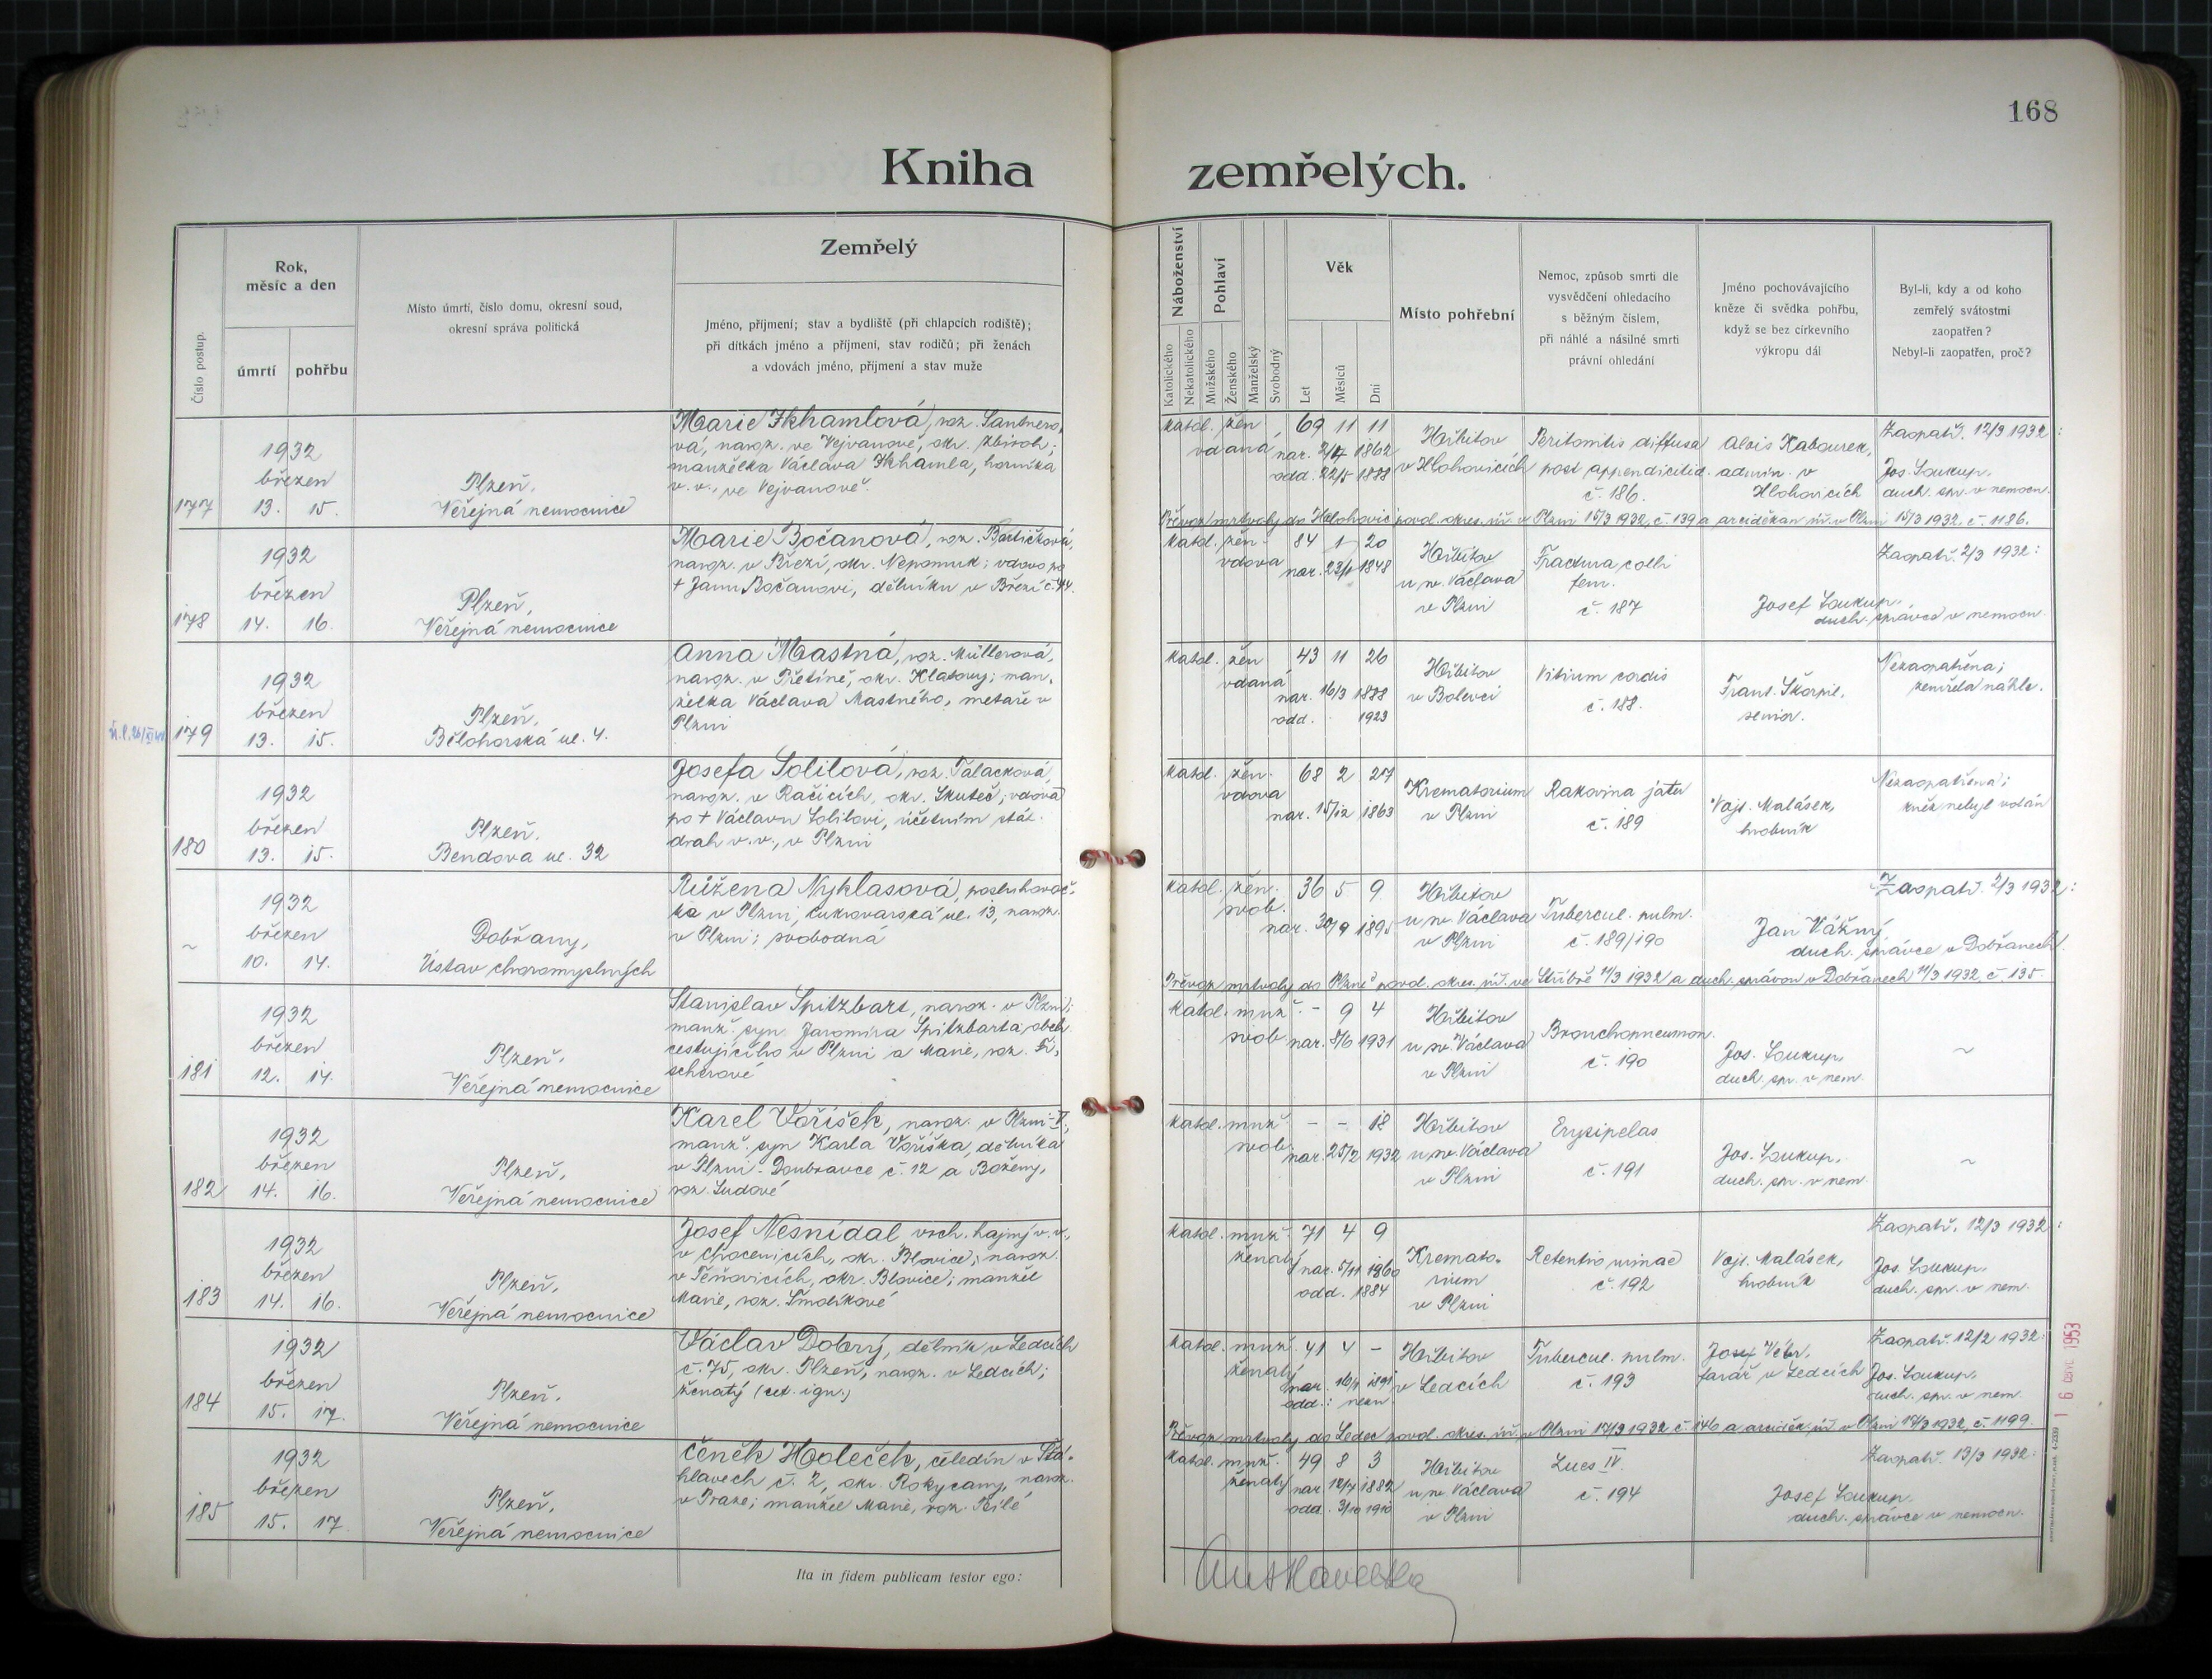 168
Kniha zemřelých.
Číslo postup.
Rok,
měsíc a den
úmrtí
pohřbu
Místo úmrtí, číslo domu, okresní soud,
okresní správa politická
Zemřelý
Jméno, příjmení; stav a bydliště (při chlapcích rodiště);
při dítkách jméno a příjmení, stav rodičů; při ženách
a vdovách jméno, příjmení a stav muže
Náboženství
Katolického
Nekatolického
Pohlaví
Mužského
Ženského
Manželský
Svobodný
Věk
Let
Měsíců
Dní
Místo pohřební
Nemoc, způsob smrti dle
vysvědčení ohledacího
s běžným číslem,
při náhlé a násilné smrti
právní ohledání
Jméno pochovávajícího
kněze či svědka pohřbu,
když se bez církevního
výkropu dál
Byl-li, kdy a od koho
zemřelý svátostmi
zaopatřen?
Nebyl-li zaopatřen, proč?
177
1932
březen
13. 15.
Plzeň,
Veřejná nemocnice
Marie Ikhamlová, roz. Santnero-
vá, naroz. ve Vejvanově, okr. Zbiroh;
manželka Václava Ikhamla, horníka
v. v., ve Vejvanově.
katol. žen 69 11 11
vdaná nar. 2/4 1862
odd. 22/5 1888
Hřbitov
v Hlohovicích
Peritonitis diffusa
post appendicitid.
č. 186.
Alois Kabourek,
admin. v
Hlohovicích
Zaopatř. 12/3 1932:
Jos. Soukup,
duch. spr. v nemocn.
Převoz mrtvoly do Hlohovic povol. okres. úř. v Plzni 15/3 1932, č. 139 a arciděkan. úř. v Plzni 15/3 1932, č. 1186.
178
1932
březen
14. 16.
Plzeň,
Veřejná nemocnice
Marie Bočanová, roz.
naroz. v Březí, okr. Nepomuk; vdova po
+ Janu Bočanovi, dělníku v Březí č. 44.
katol. žen- 84 1 20
vdova nar. 23/1 1848
Hřbitov
u sv. Václava
v Plzni
Fractura colli
fem.
č. 187
Josef Soukup,
duch. správce v nemocn.
Zaopatř. 2/3 1932:
179
1932
březen
13. 15.
Plzeň,
Bělohorská ul. 4.
Anna Mastná, roz. Müllerová,
naroz. v Přetíně, okr. Klatovy; man-
želka Václava Mastného, metaře v
Plzni
katol. žen 43 11 26
vdaná nar. 16/3 1888
odd. 1923
Hřbitov
v Bolevci
Vitium cordis
č. 188.
Frant. Škorpil,
senior.
Nezaopatřena;
zemřela náhle.
180
1932
březen
13. 15.
Plzeň,
Bendova ul. 32
Josefa Solilová, roz. Talacková,
naroz. v Račicích, okr. Skuteč; vdova
po + Václavu Solilovi, účetním stát.
drah v. v., v Plzni
katol. žen- 68 2 27
vdova nar. 15/12 1863
Krematorium
v Plzni
Rakovina jater
č. 189
Vojt. Malásek,
hrobník
Nezaopatřena;
kněz nebyl volán
~
1932
březen
10. 14.
Dobřany,
Ústav choromyslných
Růžena Nyklasová, posluhovač-
ka v Plzni, Cukrovarská ul. 13, naroz.
v Plzni; svobodná
katol. žen- 36 5 9
svob. nar. 30/9 1895
Hřbitov
u sv. Václava
v Plzni
Tubercul. pulm.
č. 189/190
Jan Vážný,
duch. správce v Dobřanech.
Zaopatř. 2/3 1932:
Převoz mrtvoly do Plzně povol. okres. úř. ve Stříbře 11/3 1932 a duch. správou v Dobřanech 11/3 1932, č. 135.
181
1932
březen
12. 14.
Plzeň,
Veřejná nemocnice
Stanislav Spitzbart, naroz. v Plzni;
manž. syn Jaromíra Spitzbarta, obch.
cestujícího v Plzni a Marie, roz. Fi-
scherové
katol. muž. - 9 4
svob. nar. 8/6 1931
Hřbitov
u sv. Václava
v Plzni
Bronchopneumon.
č. 190
Jos. Soukup,
duch. spr. v nem.
~
182
1932
březen
14. 16.
Plzeň,
Veřejná nemocnice
Karel Voříšek, naroz. v Plzni-
manž. syn Karla Voříška, dělníka
v Plzni-Doubravce č. 12 a Boženy,
roz. Sudové
katol. muž. - - 18
svob. nar. 25/2 1932
Hřbitov
u sv. Václava
v Plzni
Erysipelas
č. 191
Jos. Soukup,
duch. spr. v nem.
~
183
1932
březen
14. 16.
Plzeň,
Veřejná nemocnice
Josef Nesnídal vrch. hajný v. v.,
v Chocenicích, okr. Blovice; naroz.
v Těňovicích, okr. Blovice; manžel
Marie, roz. Smolíkové
katol. muž. 71 4 9
ženatý nar. 5/11 1860
odd. 1884
Kremato-
rium
v Plzni
Retentio urinae
č. 192
Vojt. Malásek,
hrobník
Zaopatř. 12/3 1932:
Jos. Soukup,
duch. spr. v nem.
184
1932
březen
15. 17.
Plzeň,
Veřejná nemocnice
Václav Dobrý, dělník v Ledcích
č. 75, okr. Plzeň, naroz. v Ledcích;
ženatý (cet. ign.)
katol. muž. 41 4 -
ženatý nar. 1891
odd.: nezn.
Hřbitov
v Ledcích
Tubercul. pulm.
č. 193
Josef Vébr,
farář v Ledcích
Zaopatř. 12/2 1932:
Jos. Soukup,
duch. spr. v nem.
Převoz mrtvoly do Ledec povol. okres. úř. v Plzni 17/3 1932 č. 146 a arciděk. úř. v Plzni 17/3 1932, č. 1199.
185
1932
březen
15. 17.
Plzeň,
Veřejná nemocnice
Čeněk Holeček, čeledín v Šťá-
hlavech č. 2, okr. Rokycany, naroz.
v Praze; manžel Marie, roz. Bílé
katol. muž. 49 8 3
ženatý nar. 12/7 1882
odd. 3/10 1910
Hřbitov
u sv. Václava
v Plzni
Lues IV.
č. 194
Josef Soukup,
duch. správce v nemocn.
Zaopatř. 13/3 1932:
Ita in fidem publicam testor ego:
1953